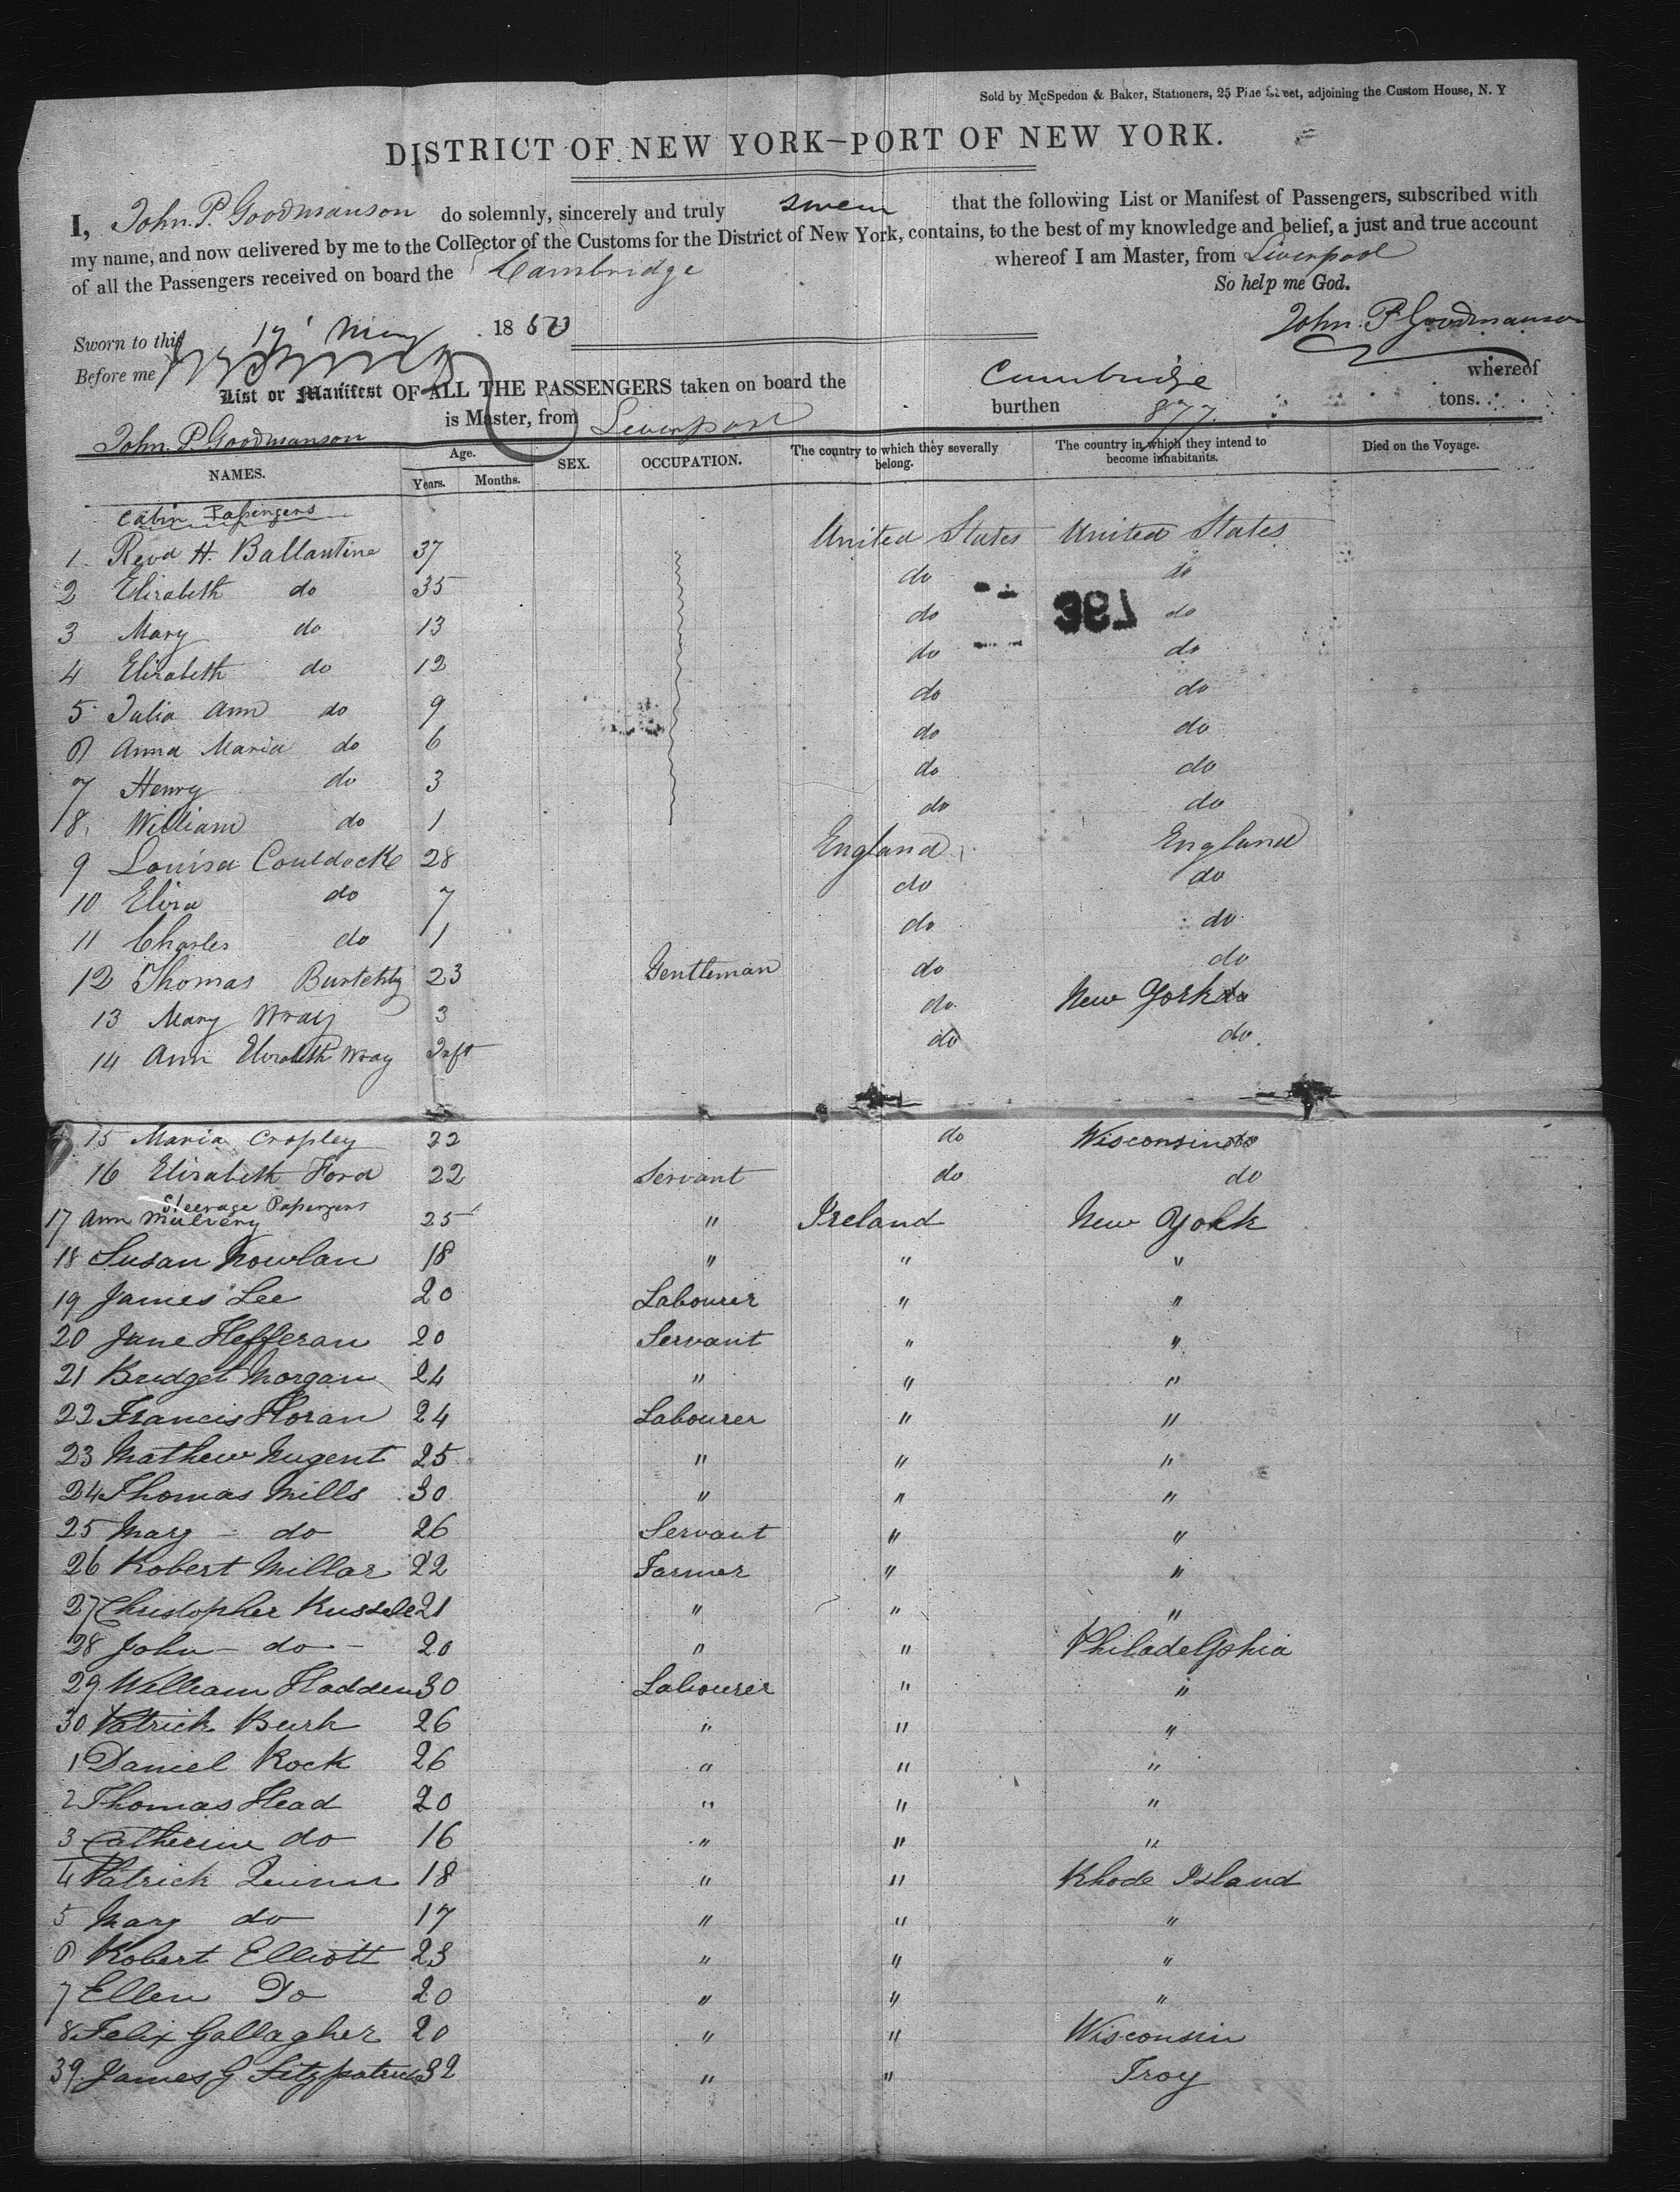 Sold by McSpedon & Baker, Stationers, 25 Pine Street, adjoining the Custom House, N. Y
DISTRICT OF NEW YORK—PORT OF NEW YORK.
I, John. P. Goodmanson do solemnly, sincerely and truly swear that the following List or Manifest of Passengers, subscribed with
my name, and now delivered by me to the Collector of the Customs for the District of New York, contains, to the best of my knowledge and belief, a just and true account
of all the Passengers received on board the Cambridge whereof I am Master, from Liverpool
So help me God.
Sworn to this 17 May 1850 John. P. Goodmanson
Before me
List or Manifest OF ALL THE PASSENGERS taken on board the Cambridge whereof
John. P. Goodmanson is Master, from Liverpool burthen 877 tons.
NAMES. Age. Years. Months. SEX. OCCUPATION. The country to which they severally belong. The country in which they intend to become inhabitants. Died on the Voyage.
Cabin Passengers
1 Revd H. Ballantine 37 United States United States
2 Elizabeth do 35 do do
3 Mary do 13 do 397 do
4 Elizabeth do 12 do do
5 Julia Ann do 9 do do
6 Anna Maria do 6 do do
7 Henry do 3 do do
8 William do 1 do do
9 Louisa Couldocke 28 England England
10 Eliza do 7 do do
11 Charles do 1 do do
12 Thomas 23 Gentleman do do
13 Mary Wray 3 do New York do
14 Ann Elizabeth Wray Inft do do
15 Maria Cropley 22 do Wisconsin do
16 Elizabeth Ford 22 Servant do do
Steerage Passengers
17 Ann Mulveny 25 " Ireland New York
18 Susan Nowlan 18 " " "
19 James Lee 20 Labourer " "
20 Jane Hefferan 20 Servant " "
21 Bridget Morgan 24 " " "
22 Francis Horan 24 Labourer " "
23 Mathew Nugent 25 " " "
24 Thomas Mills 30 " " "
25 Mary - do 26 Servant " "
26 Robert Millar 22 Farmer " "
27 Christopher Russell 21 " " "
28 John - do - 20 " " Philadelphia
29 William Hadden 30 Labourer " "
30 Patrick Burk 26 " " "
1 Daniel Rock 26 " " "
2 Thomas Head 20 " " "
3 Catherine do 16 " " "
4 Patrick Quinn 18 " " Rhode Island
5 Mary do 17 " " "
6 Robert Elliott 23 " " "
7 Ellen Do 20 " " "
8 Felix Gallagher 20 " " Wisconsin
39 James G Fitzpatrick 32 " " Troy